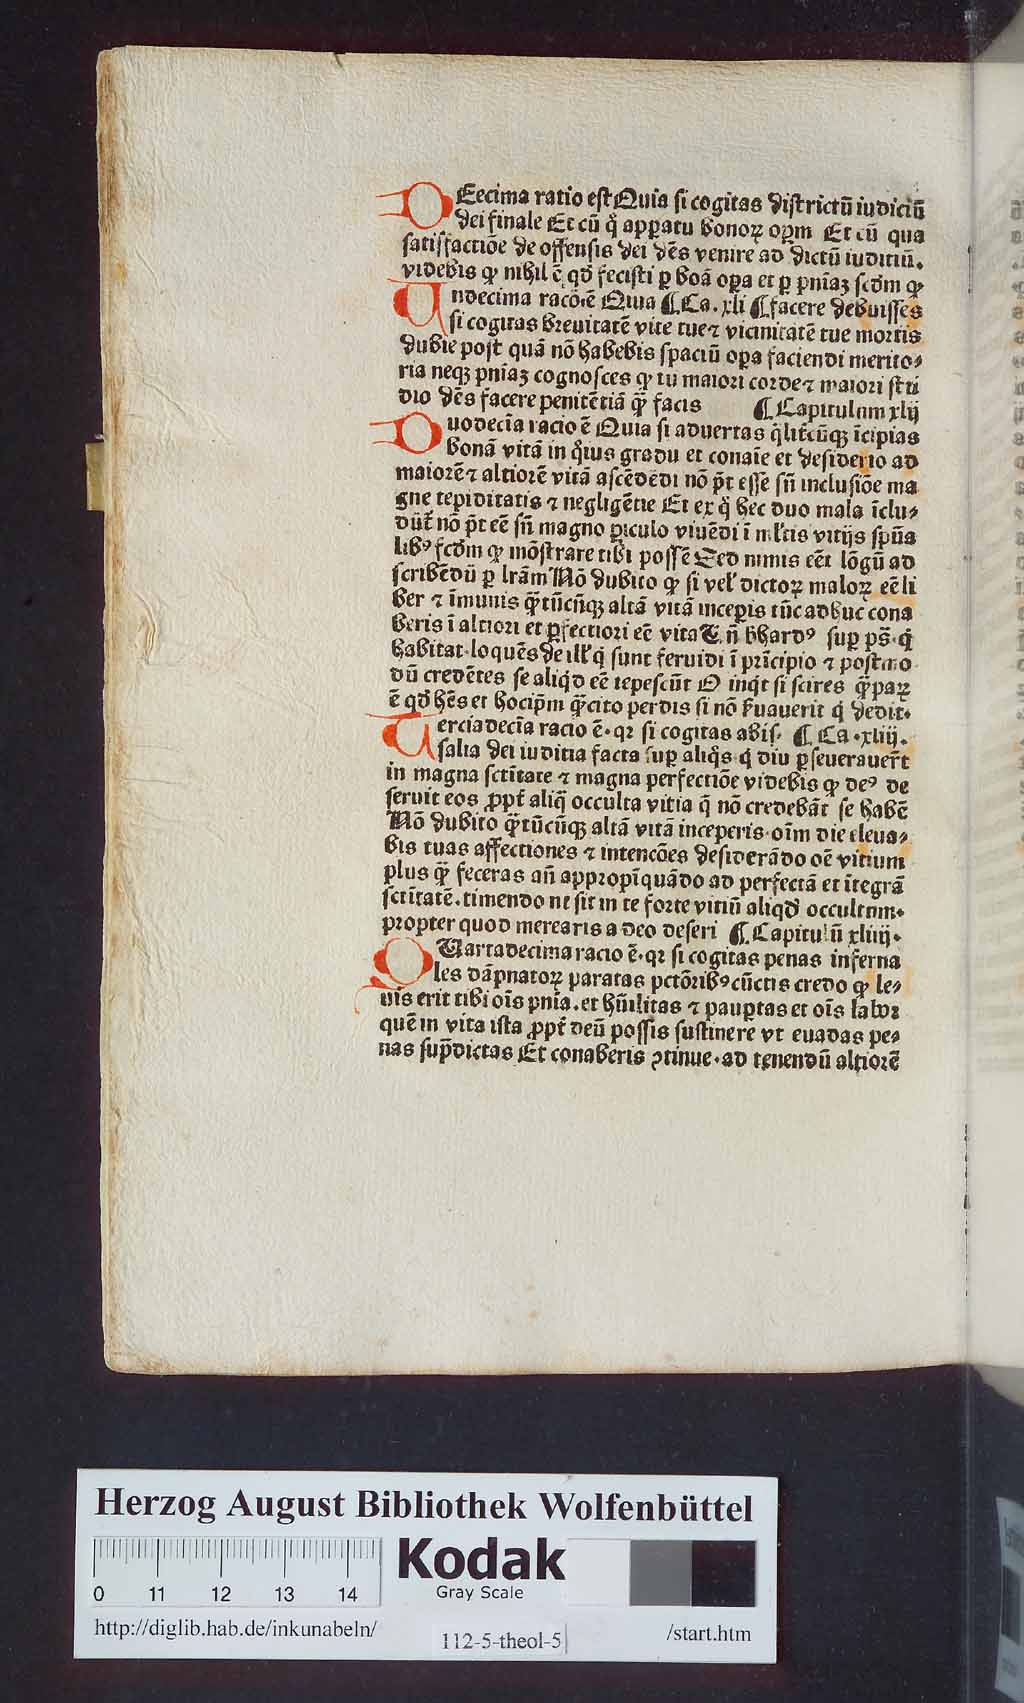 DEecima ratio est Quia si cogitas districtū iudiciū
dei finale Et cū q̊ apparatu bonoꝝ oꝑm Et cū qua
satisfactiōe de offensis dei dēs venire ad dictū iuditiū.
videbis ꝙ nihil ē qđ fecisti ꝑ boā oꝑa et ꝑ pniāꝫ scđm ꝙ
Undecima racō.ē Quia ¶ Ca. xli ¶ facere debuisses
si cogitas breuitatē vite tue ⁊ vicinitatē tue mortis
dubie post quā nō habebis spaciū oꝑa faciendi merito⸗
ria neqꝫ pniāꝫ cognosces ꝙ tu maiori corde ⁊ maiori stu
dio dēs facere penitētiā q̄ꝫ facis ¶ Capitulum xlij
Duodecīa racio ē Quia si aduertas q̄litcūqꝫ īcipias
bonā vitā in q̊ius gradu et conaīe et desiderio ad
maiorē ⁊ altiorē vitā ascēdēdi nō pt̄ esse sn̄ inclusiōe ma
gne tepiditatis ⁊ negligētie Et ex q̊ hec duo mala īclu⸗
dūt nō pt̄ eē sn̄ magno ꝑiculo viuēdi ī ml̄tis vitijs spūa
libꝰ scđm ꝙ mōstrare tibi possē Sed nimis eēt lōgū ad
scribēdū ꝑ lr̄am Nō dubito ꝙ si vel' dictoꝝ maloꝝ eē li
ber ⁊ īmunis q̄ꝫtūcūqꝫ altā vitā inceperis tūc adhuc cona
beris ī altiori et ꝑfectiori eē vita Un̄ bhardꝰ suꝑ ps̄. q̇
habitat. loquēs de ill' q̇ sunt feruidi ī prīcipio ⁊ postmo
dū credētes se aliqd eē tepescūt O inqt si scires q̄ꝫ paꝝ
ē qđ hēs et hocipm̄ q̄ꝫcito perdis si nō ẜuauerit q̇ dedit.
Terciadecīa racio ē. qꝛ si cogitas abis. ¶ Ca. xliij.
salia dei iuditia facta suꝑ aliq̊s q̇ diu ꝑseuerauerūt
in magna sctītate ⁊ magna perfectiōe videbis ꝙ deꝰ de
seruit eos ꝓpt̄ aliq̄ occulta vitia q̄ nō credebāt se habē
Nō dubito q̄ꝫtūcūqꝫ altā vitā inceperis. oīm die eleua⸗
bis tuas affectiones ⁊ intencōes desiderādo oē vitium
plus q̄ꝫ feceras an̄ appropīquādo ad perfectā et ītegrā
sctītatē. timendo ne sit in te forte vitiū aliqđ occultum.
propter quod merearis a deo deseri ¶ Capitulū xliiij.
QUartadecima racio ē. qꝛ si cogitas penas inferna
les dāpnatoꝝ paratas pctōribꝰ cūctis credo ꝙ le⸗
uis erit tibi oīs pnīa. et hūilitas ⁊ pauꝑtas et oīs laboꝛ
quē in vita ista ꝓpt̄ deū possis sustinere vt euadas pe⸗
nas sup̄dictas Et conaberis ꝯtinue. ad tenendū altiorē
Herzog August Bibliothek Wolfenbüttel
0 11 12 13 14
Kodak
Gray Scale
http://diglib.hab.de/inkunabeln/
112-5-theol-5
/start.htm